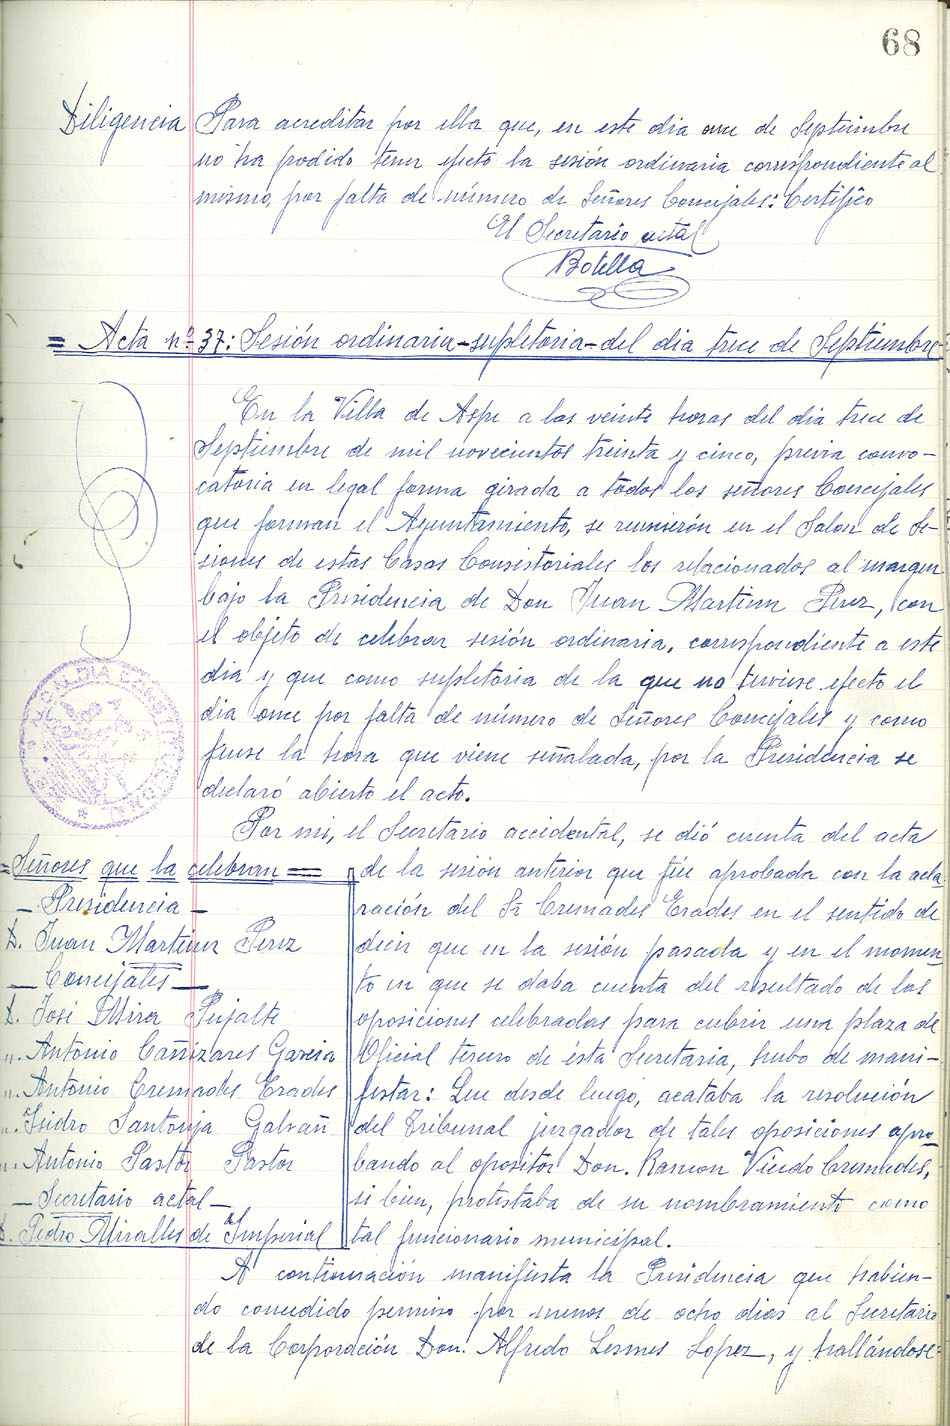 68
Diligencia Para acreditar por ella que, en este dia once de Septiembre
no ha podido tener efecto la sesión ordinaria correspondiente al
mismo, por falta de número de Señores Concejales: Certifico
El Secretario actal
Botella
= Acta nº 37: Sesión ordinaria-supletoria-del dia trece de Septiembre
En la Villa de Aspe a las veinte horas del dia trece de
Septiembre de mil novecientos treinta y cinco, previa convo-
catoria en legal forma girada a todos los señores Concejales
que forman el Ayuntamiento, se reunierón en el Salon de Se-
siones de estas Casas Consistoriales los relacionados al margen
bajo la Presidencia de Don Juan Martinez Perez, con
el objeto de celebrar sesión ordinaria, correspondiente a este
dia y que como supletoria de la que no tuviese efecto el
dia once por falta de número de Señores Concejales y como
fuese la hora que viene señalada, por la Presidencia se
declaró abierto el acto.
Por mi, el Secretario accidental, se dió cuenta del acta
de la sesión anterior que fúe aprobada con la acla-
ración del Sr Cremades Erades en el sentido de
decir que en la sesión pasada y en el momen-
to en que se daba cuenta del resultado de las
oposiciones celebradas para cubrir una plaza de
Oficial tercero de ésta Secretaria, hubo de mani-
festar: Que desde luego, acataba la resolución
del Tribunal jurgador de tales oposiciones apro-
bando al opositor Don. Ramon Viudo Cremades,
si bien, protestaba de su nombramiento como
tal funcionario municipal.
=Señores que la celebran=
- Presidencia -
D. Juan Martinez Perez
- Concejales -
D. José Mira Pujalte
". Antonio Cañizares Garcia
". Antonio Cremades Erades
". Isidro Santonja Galvañ
". Antonio Pastor Pastor
- Secretario actal -
D. Pedro Miralles de Imperial
A continuación manifiesta la Presidencia que habien-
do concedido permiso por menos de ocho dias al Secretario
de la Corporación Don. Alfredo Lesmes Lopez, y hallándose-
ALCALDIA CONSTITUCIONAL